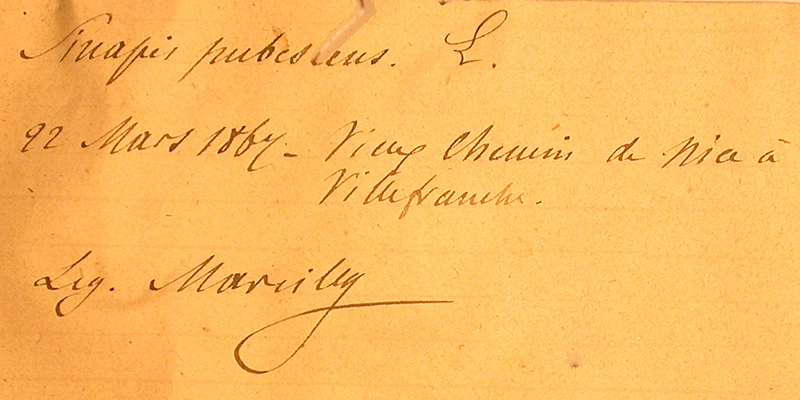 Sinapis pubescens. L.
22 Mars 1867 - Vieux Chemin de Nice à
Villefranche.
Leg. Marcilly